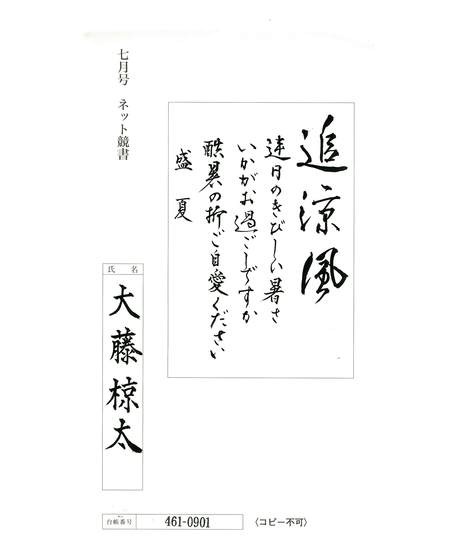 七月号 ネット競書
追涼風
連日のきびしい暑さ
いかがお過ごしですか
酷暑の折ご自愛ください
盛夏
氏名
大藤椋太
台帳番号 461-0901 〈コピー不可〉